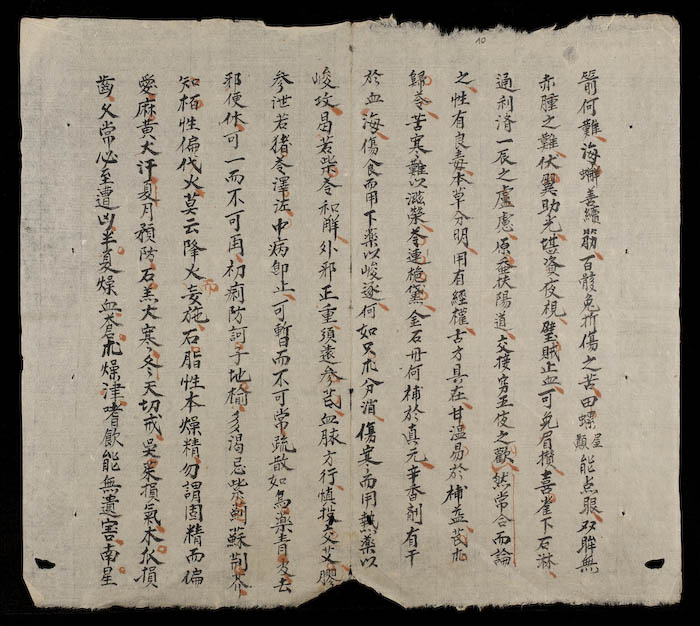 10
箭何難海螂善續筋百骸免折傷之苦田螺屋顯能点眼双眸無
赤腫之難伏翼助光堪資夜視壁賊止血可免眉攢喜雀下石淋
通利済一辰之盧慮原蚕扶陽道交接穷五夜之歡然常合而論
之性有良毒本草分明用有經權古方具在甘温易於補益芪朮
歸苓苦寒難以滋榮芩連梔黛金石丹何補於真元辛香剤有干
於血海傷食而用下藥以峻逐何如只朮分消傷寒而用熱藥以
峻攻曷若柴苓和解外邪正重須遠參芪血脉方行慎投交艾膠
参泄若猪苓澤泻中病即止可暫而不可常疏散如烏藥青皮去
邪便休可一而不可再初痢防訶子地榆多渴忌柴薊蘇荊芥
知栢性偏伐火莫云降火妄施石脂性本燥精勿謂固精而偏
愛麻黄大汗夏月預防石羔大寒冬天切戒吳茱損氣木瓜損
齒久常必至遭凶半夏燥血蒼朮燥津嗜飲能無遺害南星